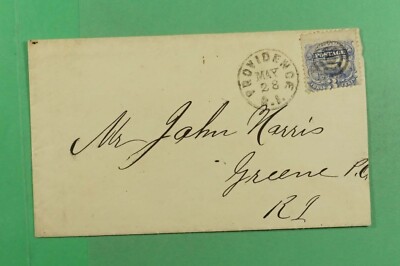 PROVIDENCE
MAY
28
R.I.
POSTAGE
Mr John Harris
Greene P.O.
RI